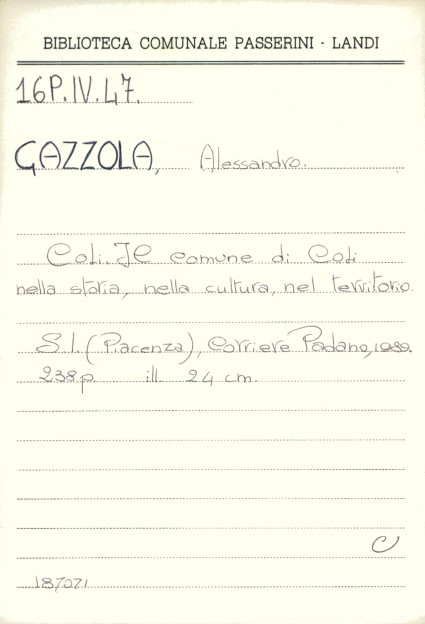 BIBLIOTECA COMUNALE PASSERINI - LANDI
16P.IV.47.
GAZZOLA, Alessandro.
Coli. Il comune di Coli
nella storia, nella cultura, nel territorio.
S.l. (Piacenza), Corriere Padano, 1989.
238 p. ill. 24 cm.
C
187071